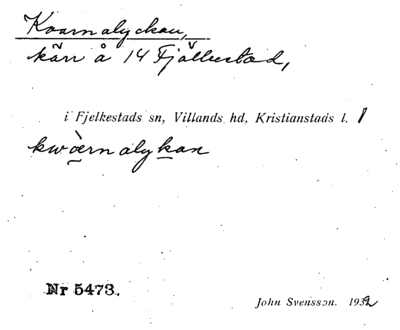 Kvarnalyckan,
kärr å 14 Fjällestad,
i Fjelkestads sn, Villands hd, Kristianstads l.
kwærnalykan
Nr 5473.
John Svensson. 1932